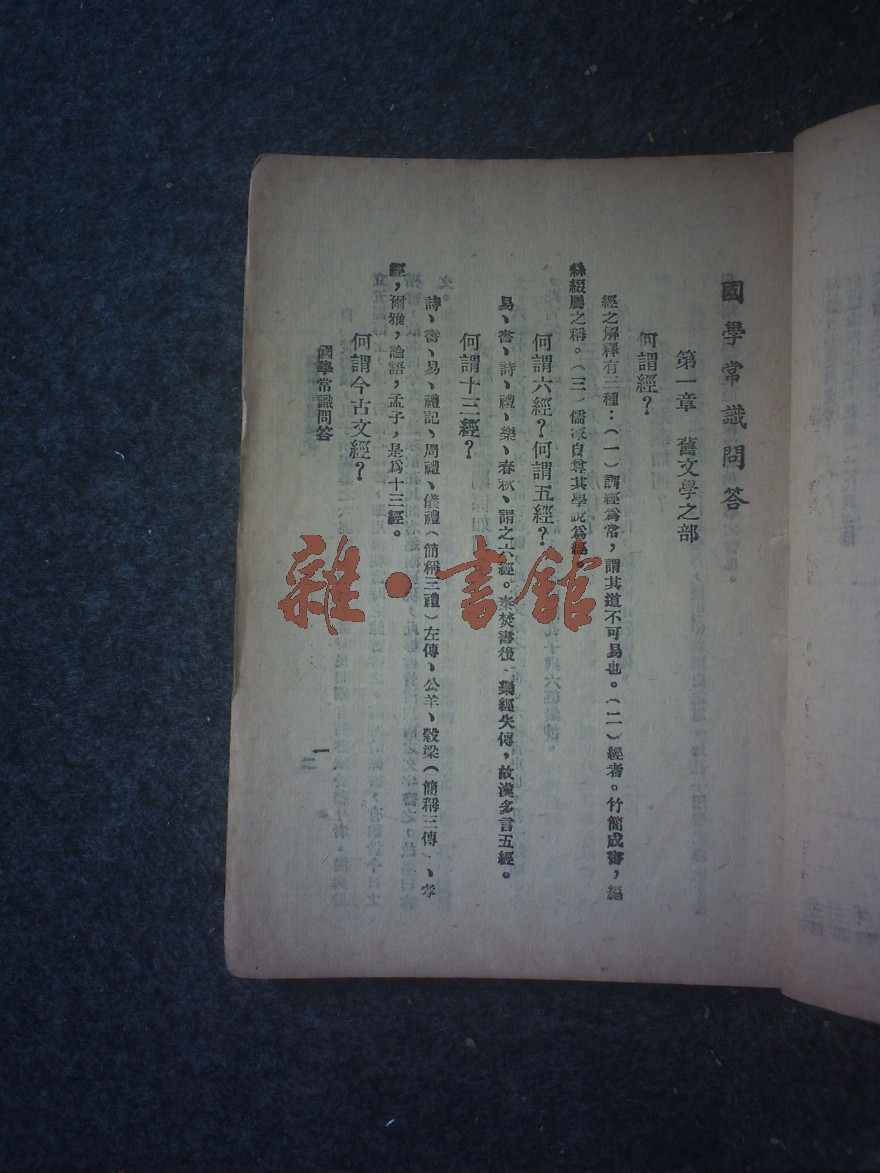 國學常識問答
第一章　舊文學之部
何謂經？
經之解釋有三種：（一）訓經爲常，謂其道不可易也。（二）經者。竹簡成書，編
絲綴屬之稱。（三）儒家自尊其學說爲經。
何謂六經？何謂五經？
易、書、詩、禮、樂、春秋、謂之六經。秦焚書後、樂經失傳，故漢多言五經。
何謂十三經？
詩、書、易、禮記、周禮、儀禮（簡稱三禮）左傳、公羊、穀梁（簡稱三傳）、孝
經，爾雅，論語，孟子，是爲十三經。
何謂今古文經？
國學常識問答
一
雜·書館